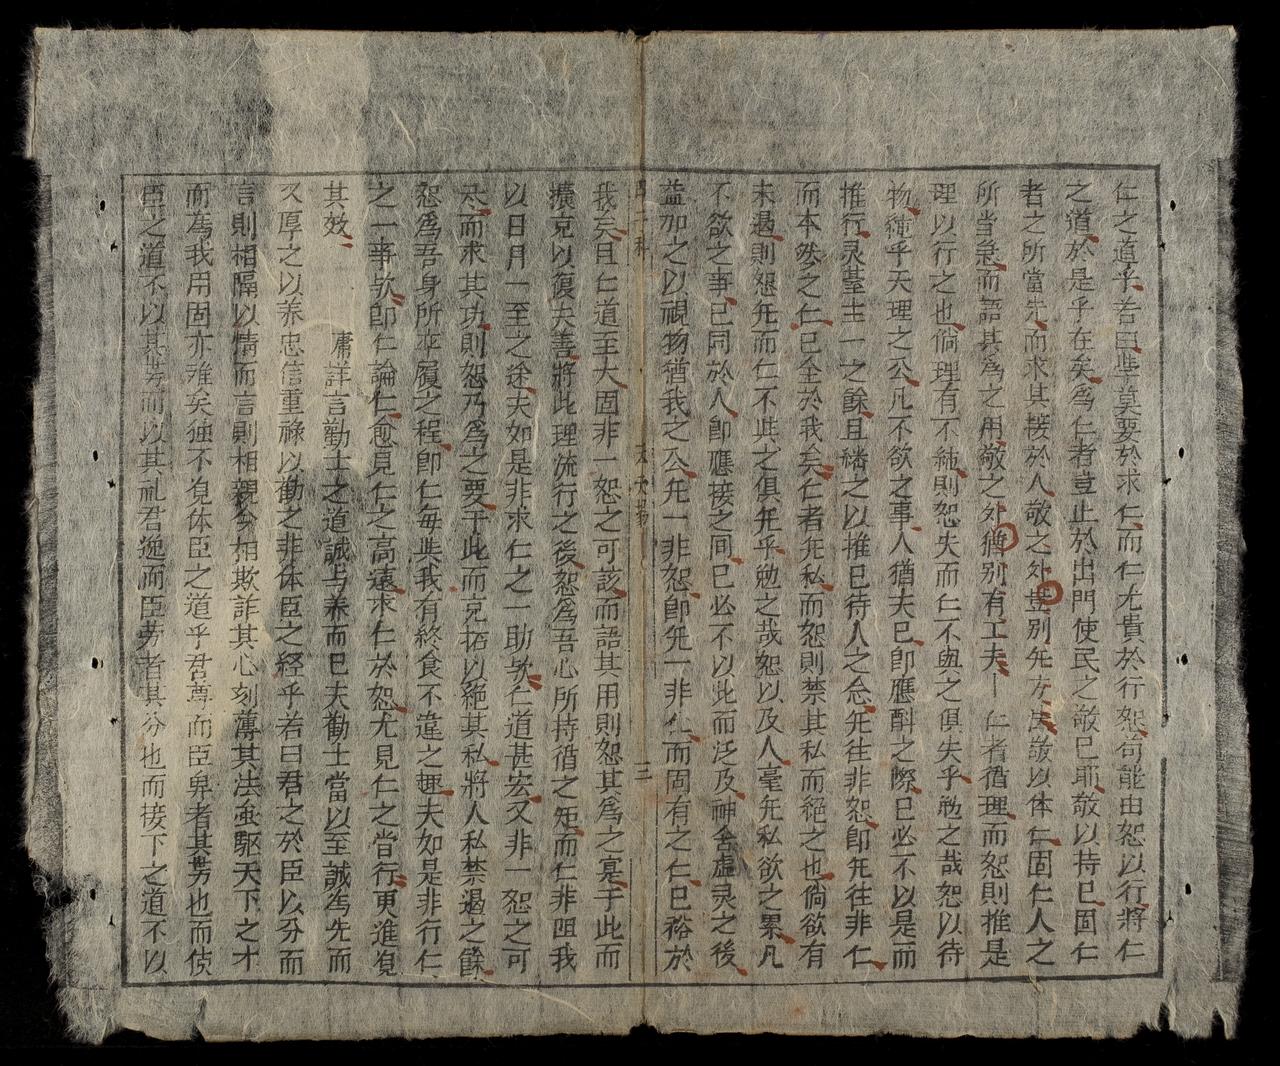 仁之道乎若曰些莫要於求仁而仁尤貴於行恕苟能由恕以行將仁
之道於是乎在矣為仁者豈止於出門使民之敬已耶敬以持己固仁
者之所當先而求其接於人敬之外豈別无方焉敬以体仁固仁人之
所當急而語其爲之用敬之外猶別有工夫仁者循理而恕則推是
理以行之也倘理有不純則恕失而仁不與之俱失乎勉之哉恕以待
物純乎天理之公凡不欲之事人猶夫己即應酬之際已必不以是而
推行灵臺主一之餘且繙之以推己待人之念无往非恕即无往非仁
而本然之仁已全於我矣仁者无私而恕則禁其私而絕之也倘欲有
未遏則恕无而仁不與之俱无乎勉之哉恕以及人毫无私欲之累凡
不欲之事己同於人即應接之间已必不以此而泛及神舍虛灵之後
益加之以視物猶我之公无一非恕即无一非仁而固有之仁已裕於
我矣且仁道至大固非一恕之可該而語其用則恕其爲之寔于此而
擴充以復夫善將此理流行之後恕爲吾心所持循之矩而仁非阻我
以日月一至之途夫如是非求仁之一助欤仁道甚宏又非一恕之可
盡而求其功則恕乃爲之要于此而克拓以絕其私將人私禁遏之餘
恕爲吾身所率履之程即仁每與我有終食不違之趣夫如是非行仁
之一事欤即仁論仁愈見仁之高遠求仁於恕尤見仁之當行更進覓
其效
庸詳言勸士之道誠与养而已夫勸士當以至誠為先而
又厚之以养忠信重祿以勸之非体臣之経乎若曰君之於臣以分而
言則相隔以情而言則相親分相欺詐其心刻薄其法虽驅天下之才
而為我用固亦难矣独不覓体臣之道乎君尊而臣卑者其势也而使
臣之道不以其势而以其礼君逸而臣劳者其分也而接下之道不以
三